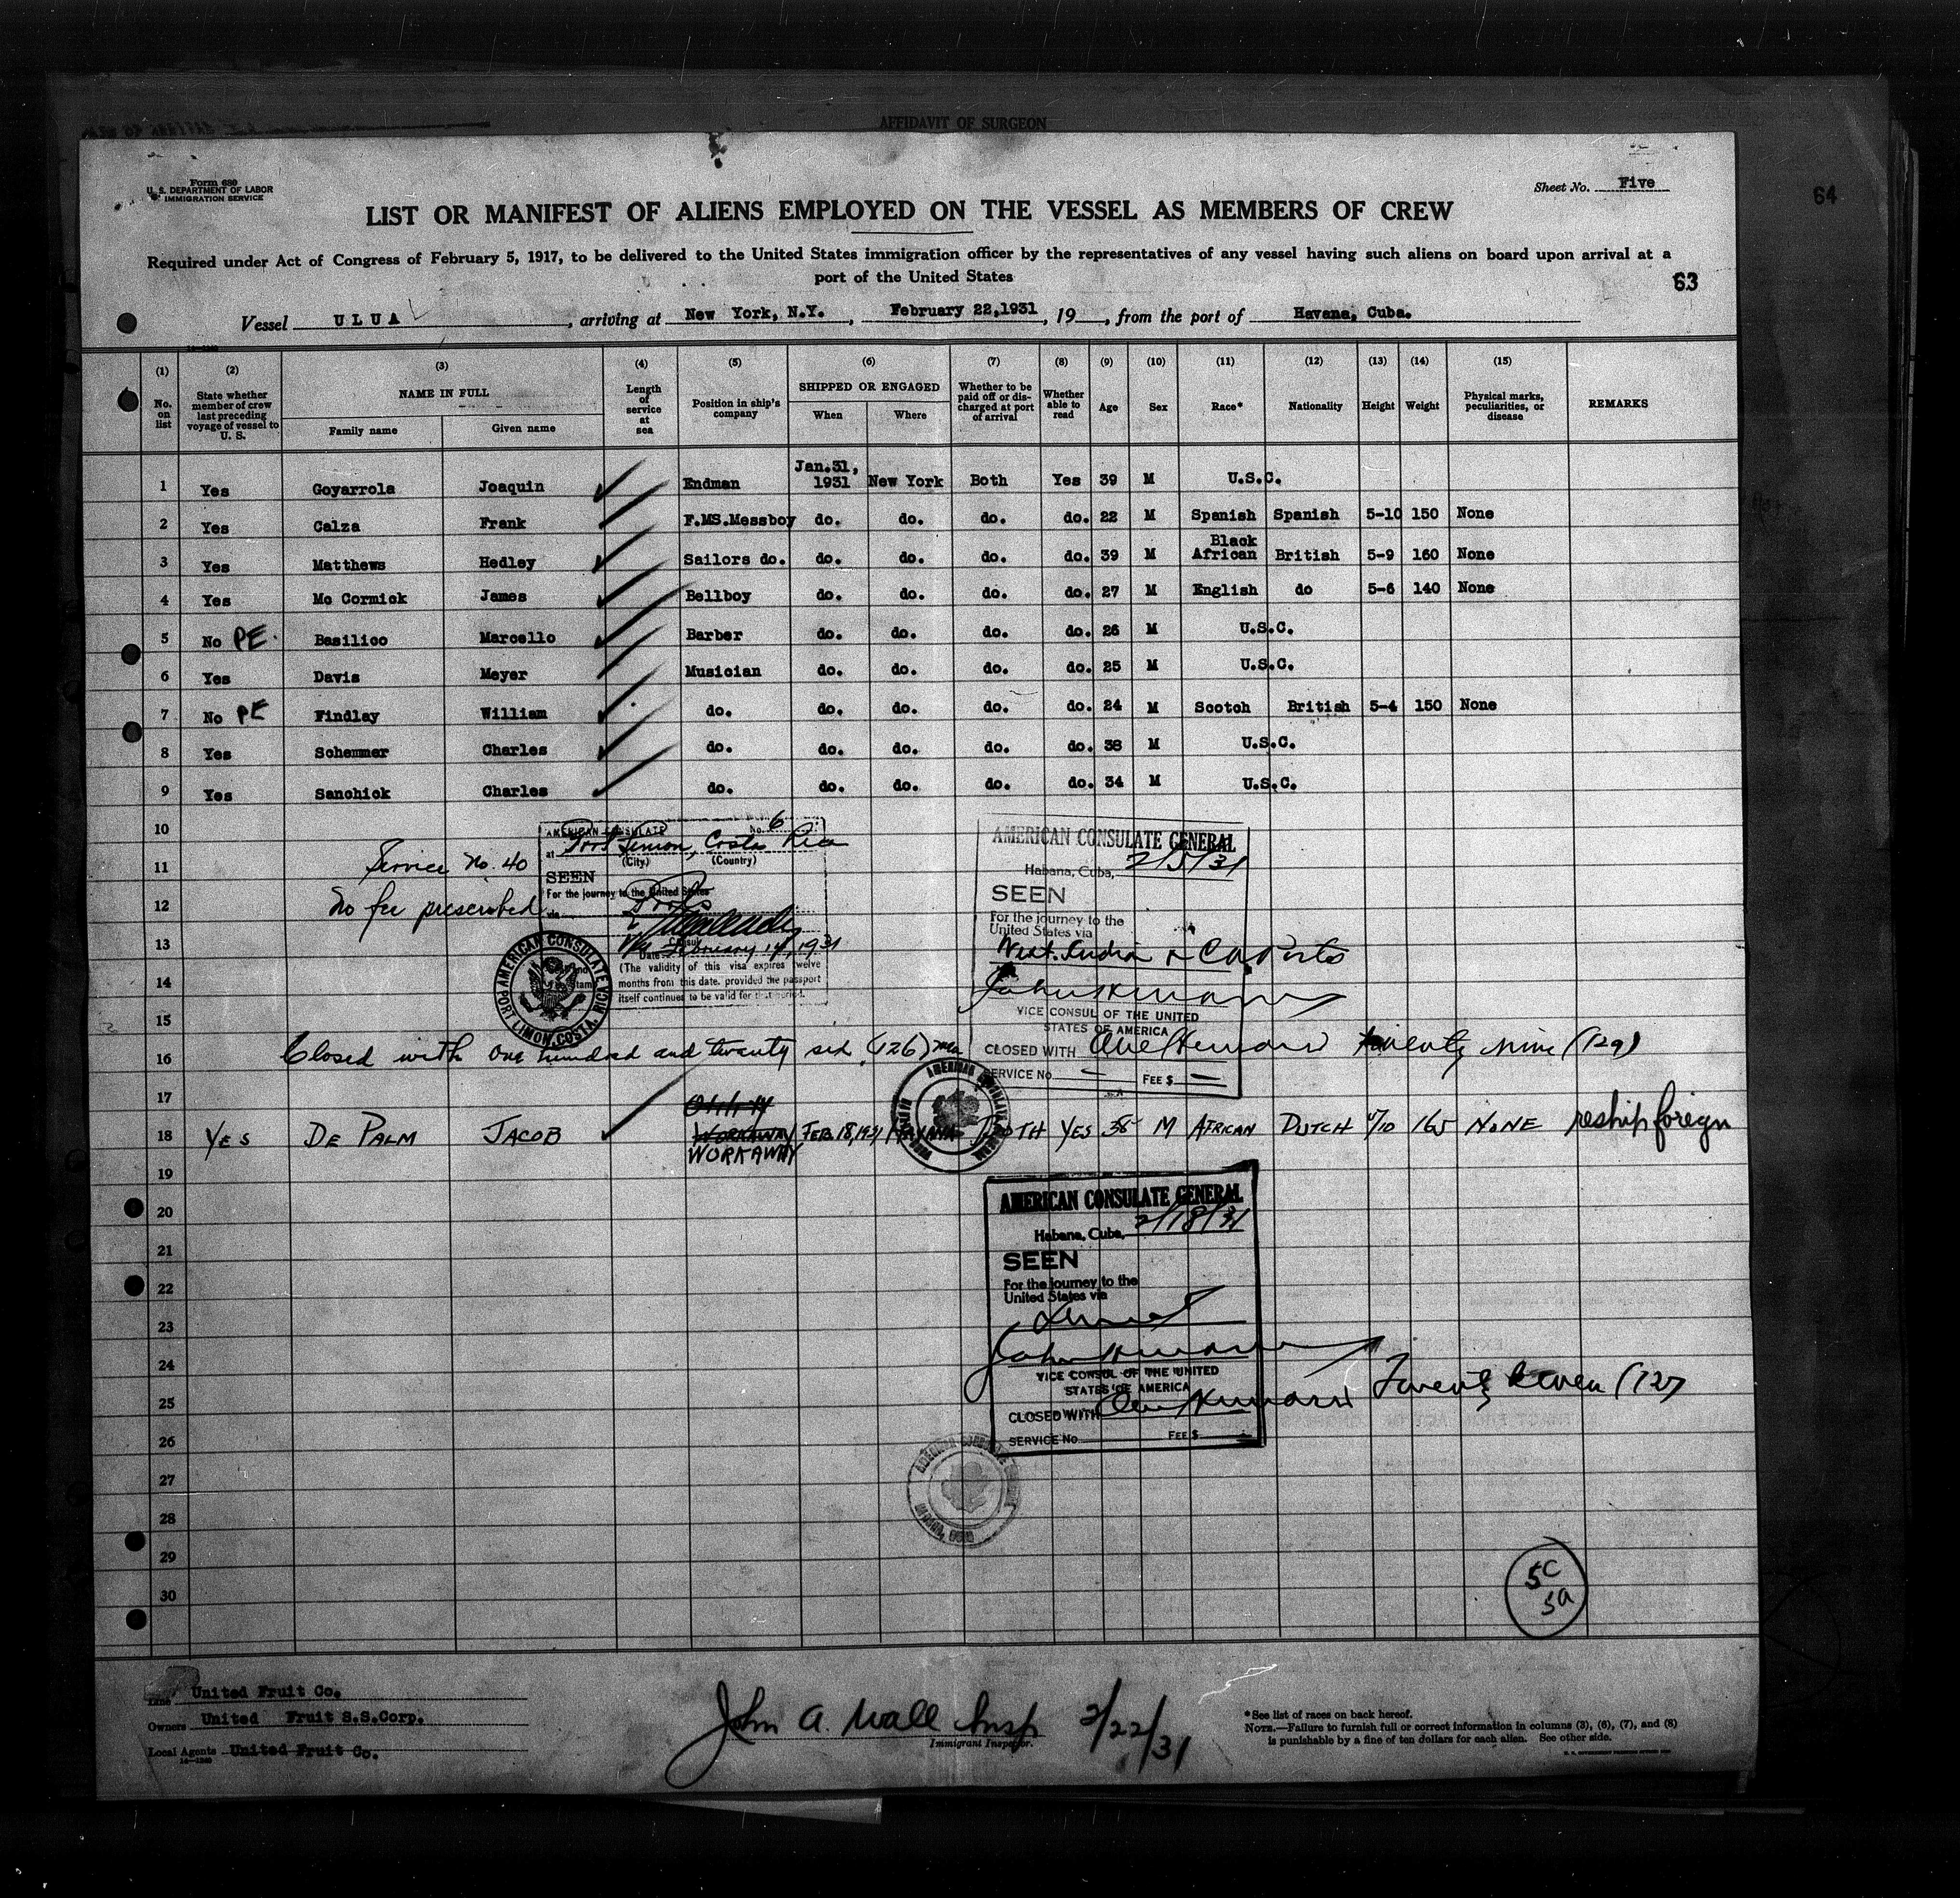 AFFIDAVIT OF SURGEON
Form 680
U. S. DEPARTMENT OF LABOR
IMMIGRATION SERVICE
Sheet No. Five
64
LIST OR MANIFEST OF ALIENS EMPLOYED ON THE VESSEL AS MEMBERS OF CREW
Required under Act of Congress of February 5, 1917, to be delivered to the United States immigration officer by the representatives of any vessel having such aliens on board upon arrival at a
port of the United States
63
Vessel ULUA, arriving at New York, N.Y., February 22,1931, 19, from the port of Havana, Cuba.
(1) (2) (3) (4) (5) (6) (7) (8) (9) (10) (11) (12) (13) (14) (15)
No. on list
State whether member of crew last preceding voyage of vessel to U. S.
NAME IN FULL
Family name
Given name
Length of service at sea
Position in ship's company
SHIPPED OR ENGAGED
When
Where
Whether to be paid off or discharged at port of arrival
Whether able to read
Age
Sex
Race*
Nationality
Height
Weight
Physical marks, peculiarities, or disease
REMARKS
1 Yes Goyarrola Joaquin Endman Jan.31, 1931 New York Both Yes 39 M U.S.C.
2 Yes Calza Frank F.MS.Messboy do. do. do. do. 22 M Spanish Spanish 5-10 150 None
3 Yes Matthews Hedley Sailors do. do. do. do. do. 39 M Black African British 5-9 160 None
4 Yes Mc Cormick James Bellboy do. do. do. do. 27 M English do 5-6 140 None
5 No PE. Basilico Marcello Barber do. do. do. do. 26 M U.S.C.
6 Yes Davis Meyer Musician do. do. do. do. 25 M U.S.C.
7 No PE Findlay William do. do. do. do. do. 24 M Scotch British 5-4 150 None
8 Yes Schemmer Charles do. do. do. do. do. 38 M U.S.C.
9 Yes Sanchick Charles do. do. do. do. do. 34 M U.S.C.
10
11
12
13
14
15
16
17
AMERICAN CONSULATE No. 6
at Port Limon, Costa Rica
(City) (Country)
Service No. 40
SEEN
For the journey to the United States
No fee prescribed
via
Consul
Date February 14, 1931
(The validity of this visa expires twelve
months from this date, provided the passport
itself continues to be valid for that period.
AMERICAN CONSULATE
PORT LIMON, COSTA RICA
AMERICAN CONSULATE GENERAL
Habana, Cuba, 2/5/31
SEEN
For the journey to the
United States via
West India & CA Ports
VICE CONSUL OF THE UNITED
STATES OF AMERICA
CLOSED WITH One Hundred twenty nine (129)
SERVICE No. — FEE $ —
Closed with one hundred and twenty six (126) men
18 YES DE PALM JACOB WORKAWAY WORKAWAY FEB 18,1931 HAVANA BOTH YES 35 M AFRICAN DUTCH 165 NONE reship foreign
19
20
21
22
23
24
25
26
27
28
29
30
AMERICAN CONSULATE GENERAL
Habana, Cuba, 2/18/31
SEEN
For the journey to the
United States via
Direct
VICE CONSUL OF THE UNITED
STATES OF AMERICA
CLOSED WITH One Hundred Twenty Seven (127
SERVICE No. FEE $
5C
5a
Line United Fruit Co.
Owners United Fruit S.S.Corp.
Local Agents United Fruit Co.
John A. Wall Insp 2/22/31
Immigrant Inspector.
*See list of races on back hereof.
NOTE.—Failure to furnish full or correct information in columns (3), (6), (7), and (8)
is punishable by a fine of ten dollars for each alien. See other side.